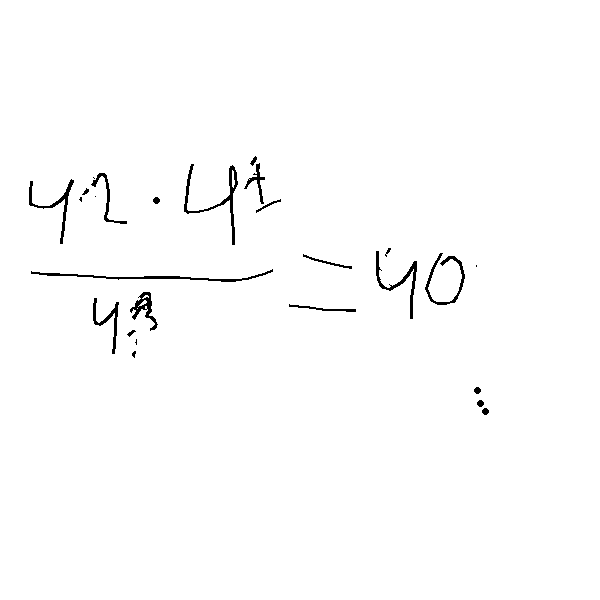 42 · 41
4
= 40